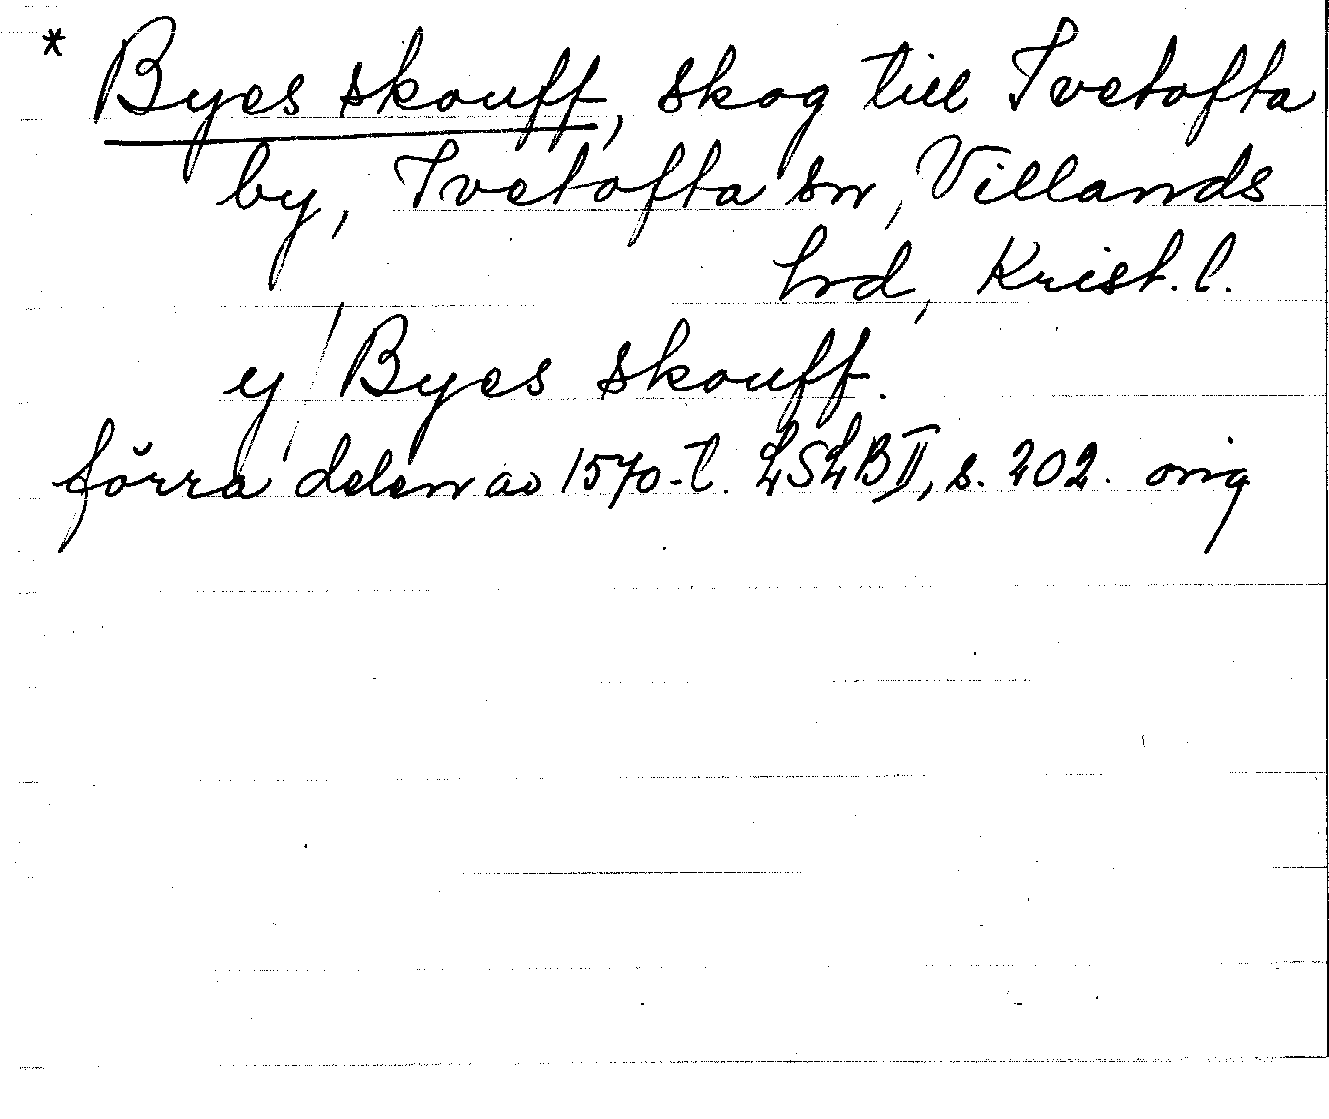 * Byes skouff, skog till Tvetofta
by, Tvetofta sn, Villands
hrd, Krist. l.
y / Byes skouff.
förra delen av 1570-t. LSLB II, s. 202. orig